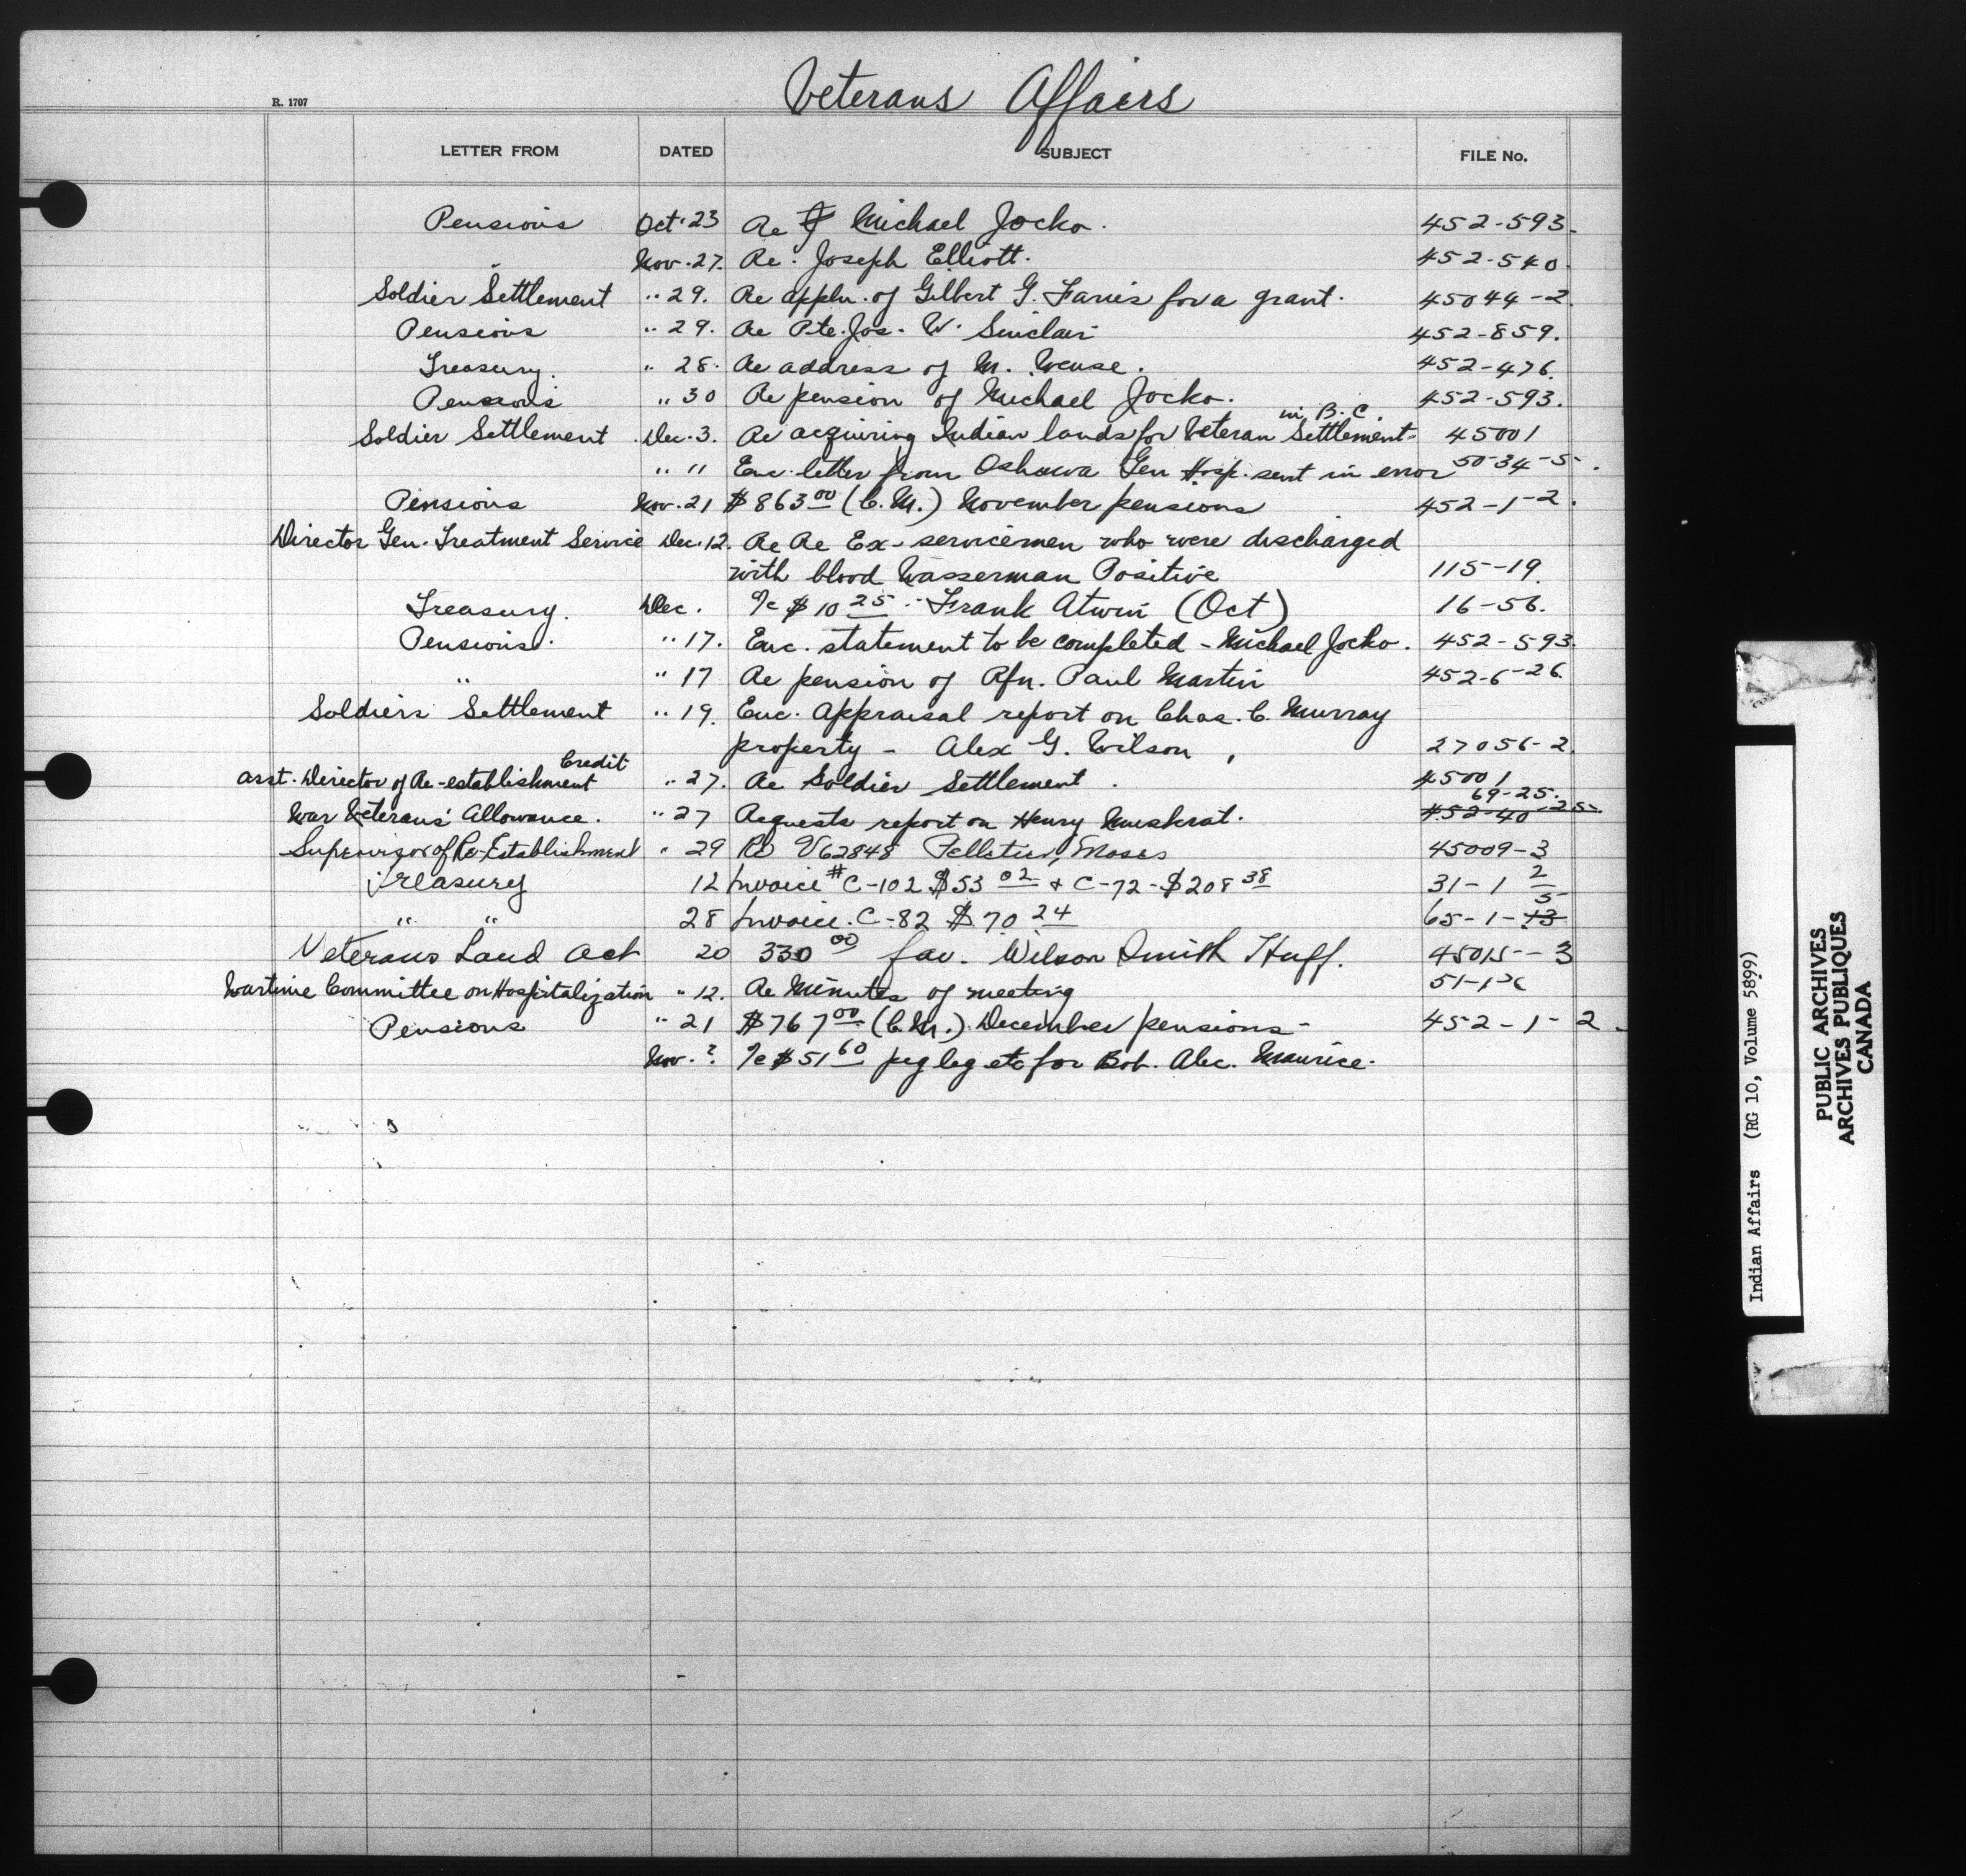 Veterans Affairs
R. 1707
LETTER FROM DATED SUBJECT FILE No.
Pensions Oct. 23 Re Michael Jocko. 452-593.
" Nov. 27. Re. Joseph Elliott. 452-540.
Soldier Settlement " 29. Re appln. of Gilbert G. Faries for a grant. 45044-2.
Pensions " 29. Re Pte. Jos. W. Sinclair 452-859.
Treasury. " 28. Re address of M. 452-476.
Pensions " 30 Re pension of Michael Jocko. 452-593.
in B.C.
Soldier Settlement Dec. 3. Re acquiring Indian lands for Veteran Settlement 45001
" " Enc. letter from Oshawa Gen Hosp. sent in error 50-34-5.
Pensions Nov. 21 $863 00 (C.M.) November pensions 452-1-2.
Director Gen. Treatment Service Dec. 12. Re Re Ex-servicemen who were discharged
with blood Wasserman Positive 115-19.
Treasury. Dec. Te $10 25 Frank Atwin (Oct) 16-56.
Pensions. " 17. Enc. statement to be completed - Michael Jocko. 452-593.
" " 17 Re pension of Rfn. Paul Martin 452-6-26.
Soldiers Settlement " 19. Enc. Appraisal report on Chas. C. Murray
property - Alex G. Wilson, 27056-2.
Credit
Asst. Director of Re-establishment " 27. Re Soldier Settlement. 45001
69-25.
War Veterans' Allowance. " 27 Requests report on Henry Muskrat. 452-40-25
Supervisor of Re-Establishment " 29 Re V62848 Pelletier, Moses 45009-3
Treasury 12 Invoice #C-102 $53 02 & C-72-$208 38 31-1 2
5
" " 28 Invoice. C-82 $70 24 65-1-13
Veterans Land Act 20 330 00 fav. Wilson Smith Huff. 45015--3
Wartime Committee on Hospitalization " 12. Re Minutes of meeting
Pensions " 21 $767 00 (C.M.) December pensions- 452-1-2.
Nov. ? Te $51 60 peg leg etc for Bob. Alec. Maurice.
Indian Affairs (RG 10, Volume 5899)
PUBLIC ARCHIVES
ARCHIVES PUBLIQUES
CANADA